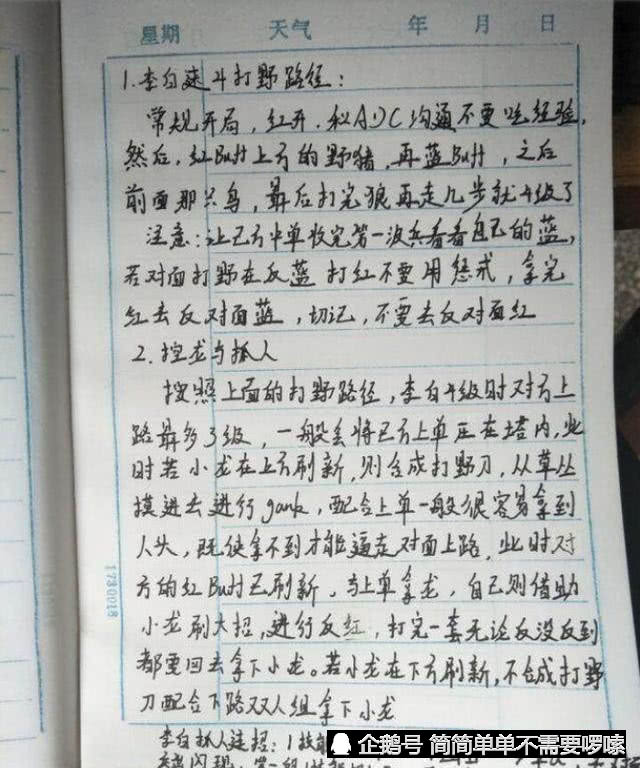 星期 天气 年 月 日
1.李白速4打野路径:
常规开局,红开.和ADC沟通不要吃经验,
然后,红Buff上方的野猪,再蓝Buff,之后
前面那只鸟,最后打完狼再走几步就4级了
注意:让己方中单收完第一波兵看看自己的蓝,
若对面打野在反蓝 打红不要用惩戒,拿完
红去反对面蓝,切记,不要去反对面红
2.控龙与抓人
按照上面的打野路径,李白4级时对方上
路最多3级,一般会将己方上单压在塔内,此
时若小龙在上方刷新,则合成打野刀,从草丛
摸进去进行gank,配合上单一般很容易拿到
人头,既使拿不到才能逼走对面上路,此时对
方的红Buff已刷新,与上单拿龙,自己则借助
小龙刷大招,进行反红,打完一套无论反没反到
都要回去拿下小龙。若小龙在下方刷新,不合成打野
刀配合下路双人组拿下小龙
李白抓人连招:1技
1730018
企鹅号 简简单单不需要啰嗦